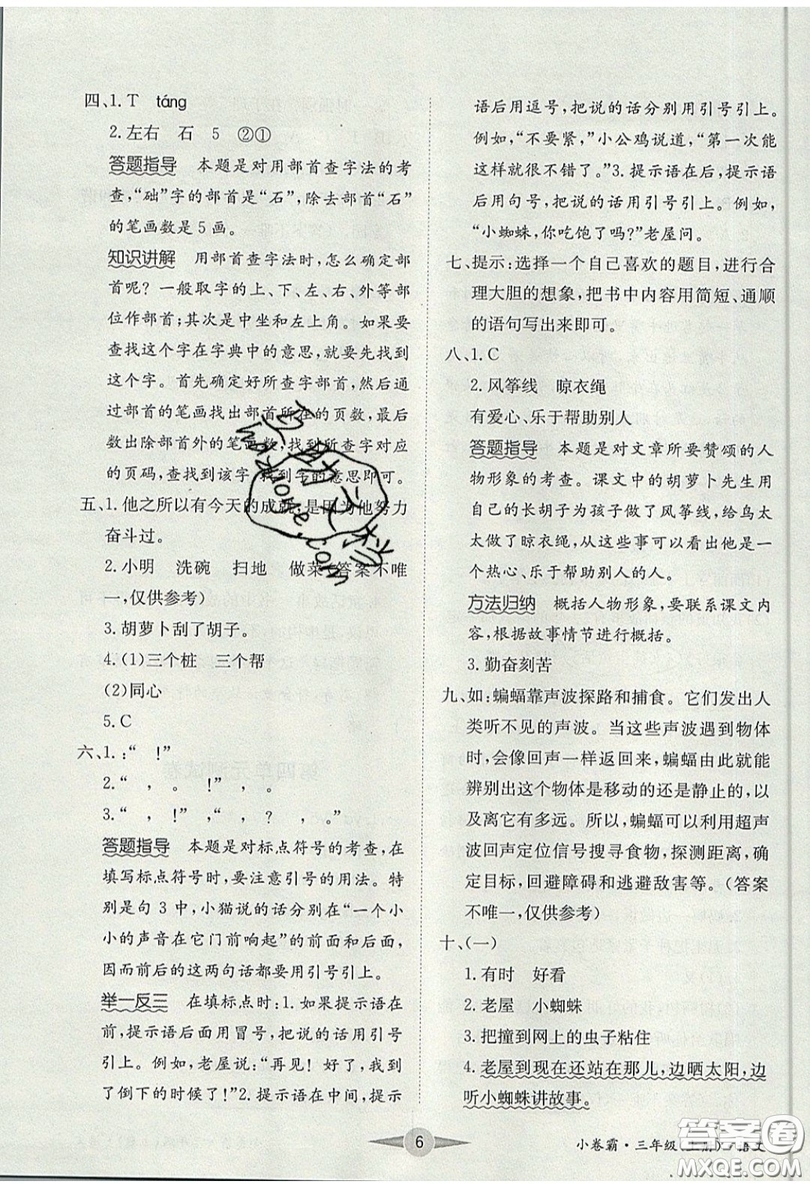 四、1. T　táng
2. 左右　石　5　②①
答题指导　本题是对用部首查字法的考
查，“础”字的部首是“石”，除去部首“石”
的笔画数是5画。
知识讲解　用部首查字法时，怎么确定部
首呢？一般取字的上、下、左、右、外等部
位作部首；其次是中坐和左上角。如果要
查找这个字在字典中的意思，就要先找到
这个字。首先确定好所查字部首，然后通
过部首的笔画找出部首所在的页数，最后
数出除部首外的笔画数，找到所查字对应
的页码，查找到该字，找到字的意思即可。
五、1. 他之所以有今天的成就，是因为他努力
奋斗过。
2. 小明　洗碗　扫地　做菜（答案不唯
一，仅供参考）
3. 胡萝卜刮了胡子。
4. (1)三个桩　三个帮
(2)同心
5. C
六、1. ：“　！”
2. “　，　。”“　，　！”
3. “　，　！”　，“　？　，　。”
答题指导　本题是对标点符号的考查，在
填写标点符号时，要注意引号的用法。特
别是句3中，小猫说的话分别在“一个小
小的声音在它门前响起”的前面和后面，
因而前后的这两句话都要用引号引上。
举一反三　在填标点时：1. 如果提示语在前，
提示语后面用冒号，把说的话用引号
引上。例如，老屋说：“再见！好了，我到
了倒下的时候了！”2. 提示语在中间，提示
语后用逗号，把说的话分别用引号引上。
例如，“不要紧，”小公鸡说道，“第一次能
这样就很不错了。”3. 提示语在后，提示语
后用句号，把说的话用引号引上。例如，
“小蜘蛛，你吃饱了吗？”老屋问。
七、提示：选择一个自己喜欢的题目，进行合
理大胆的想象，把书中内容用简短、通顺
的语句写出来即可。
八、1. C
2. 风筝线　晾衣绳
有爱心、乐于帮助别人
答题指导　本题是对文章所要赞颂的人
物形象的考查。课文中的胡萝卜先生用
自己的长胡子为孩子做了风筝线，给鸟太
太做了晾衣绳，从这些事可以看出他是一
个热心、乐于帮助别人的人。
方法归纳　概括人物形象，要联系课文内
容，根据故事情节进行概括。
3. 勤奋刻苦
九、如：蝙蝠靠声波探路和捕食。它们发出人
类听不见的声波。当这些声波遇到物体
时，会像回声一样返回来，蝙蝠由此就能
辨别出这个物体是移动的还是静止的，以
及离它有多远。所以，蝙蝠可以利用超声
波回声定位信号搜寻食物，探测距离，确
定目标，回避障碍和逃避敌害等。（答案
不唯一，仅供参考）
十、（一）
1. 有时　好看
2. 老屋　小蜘蛛
3. 把撞到网上的虫子粘住
4. 老屋到现在还站在那儿，边晒太阳，边
听小蜘蛛讲故事。
6
小卷霸·三年级
答案圈
MXQE.COM